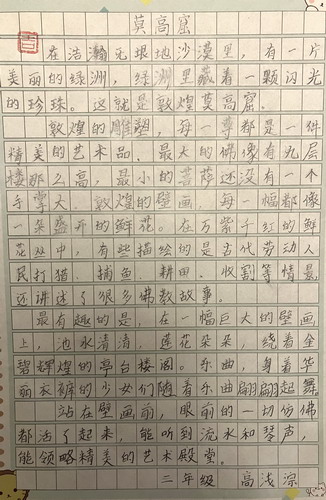 莫高窟
吉
在浩瀚无垠地沙漠里，有一片
美丽的绿洲，绿洲里藏着一颗闪光
的珍珠。这就是敦煌莫高窟.
敦煌的雕塑，每一尊都是一件
精美的艺术品.最大的佛像有九层
楼那么高，最小的菩萨还没有一个
手掌大.敦煌的壁画，每一幅都像
一朵盛开的鲜花。在万紫千红的鲜
花丛中，有些描绘的是古代劳动人
民打猎.捕鱼.耕田.收割等情景，
还讲述了很多佛教故事。
最有趣的是，在一幅巨大的壁画
上，池水清清，莲花朵朵，绕着金
碧辉煌的亭台楼阁。乐曲，身着华
丽衣裤的少女们随着乐曲翩翩起舞
站在壁画前，眼前的一切仿佛
都活了起来，能听到流水和琴声，
能领略精美的艺术殿堂。
二年级 高浅淙